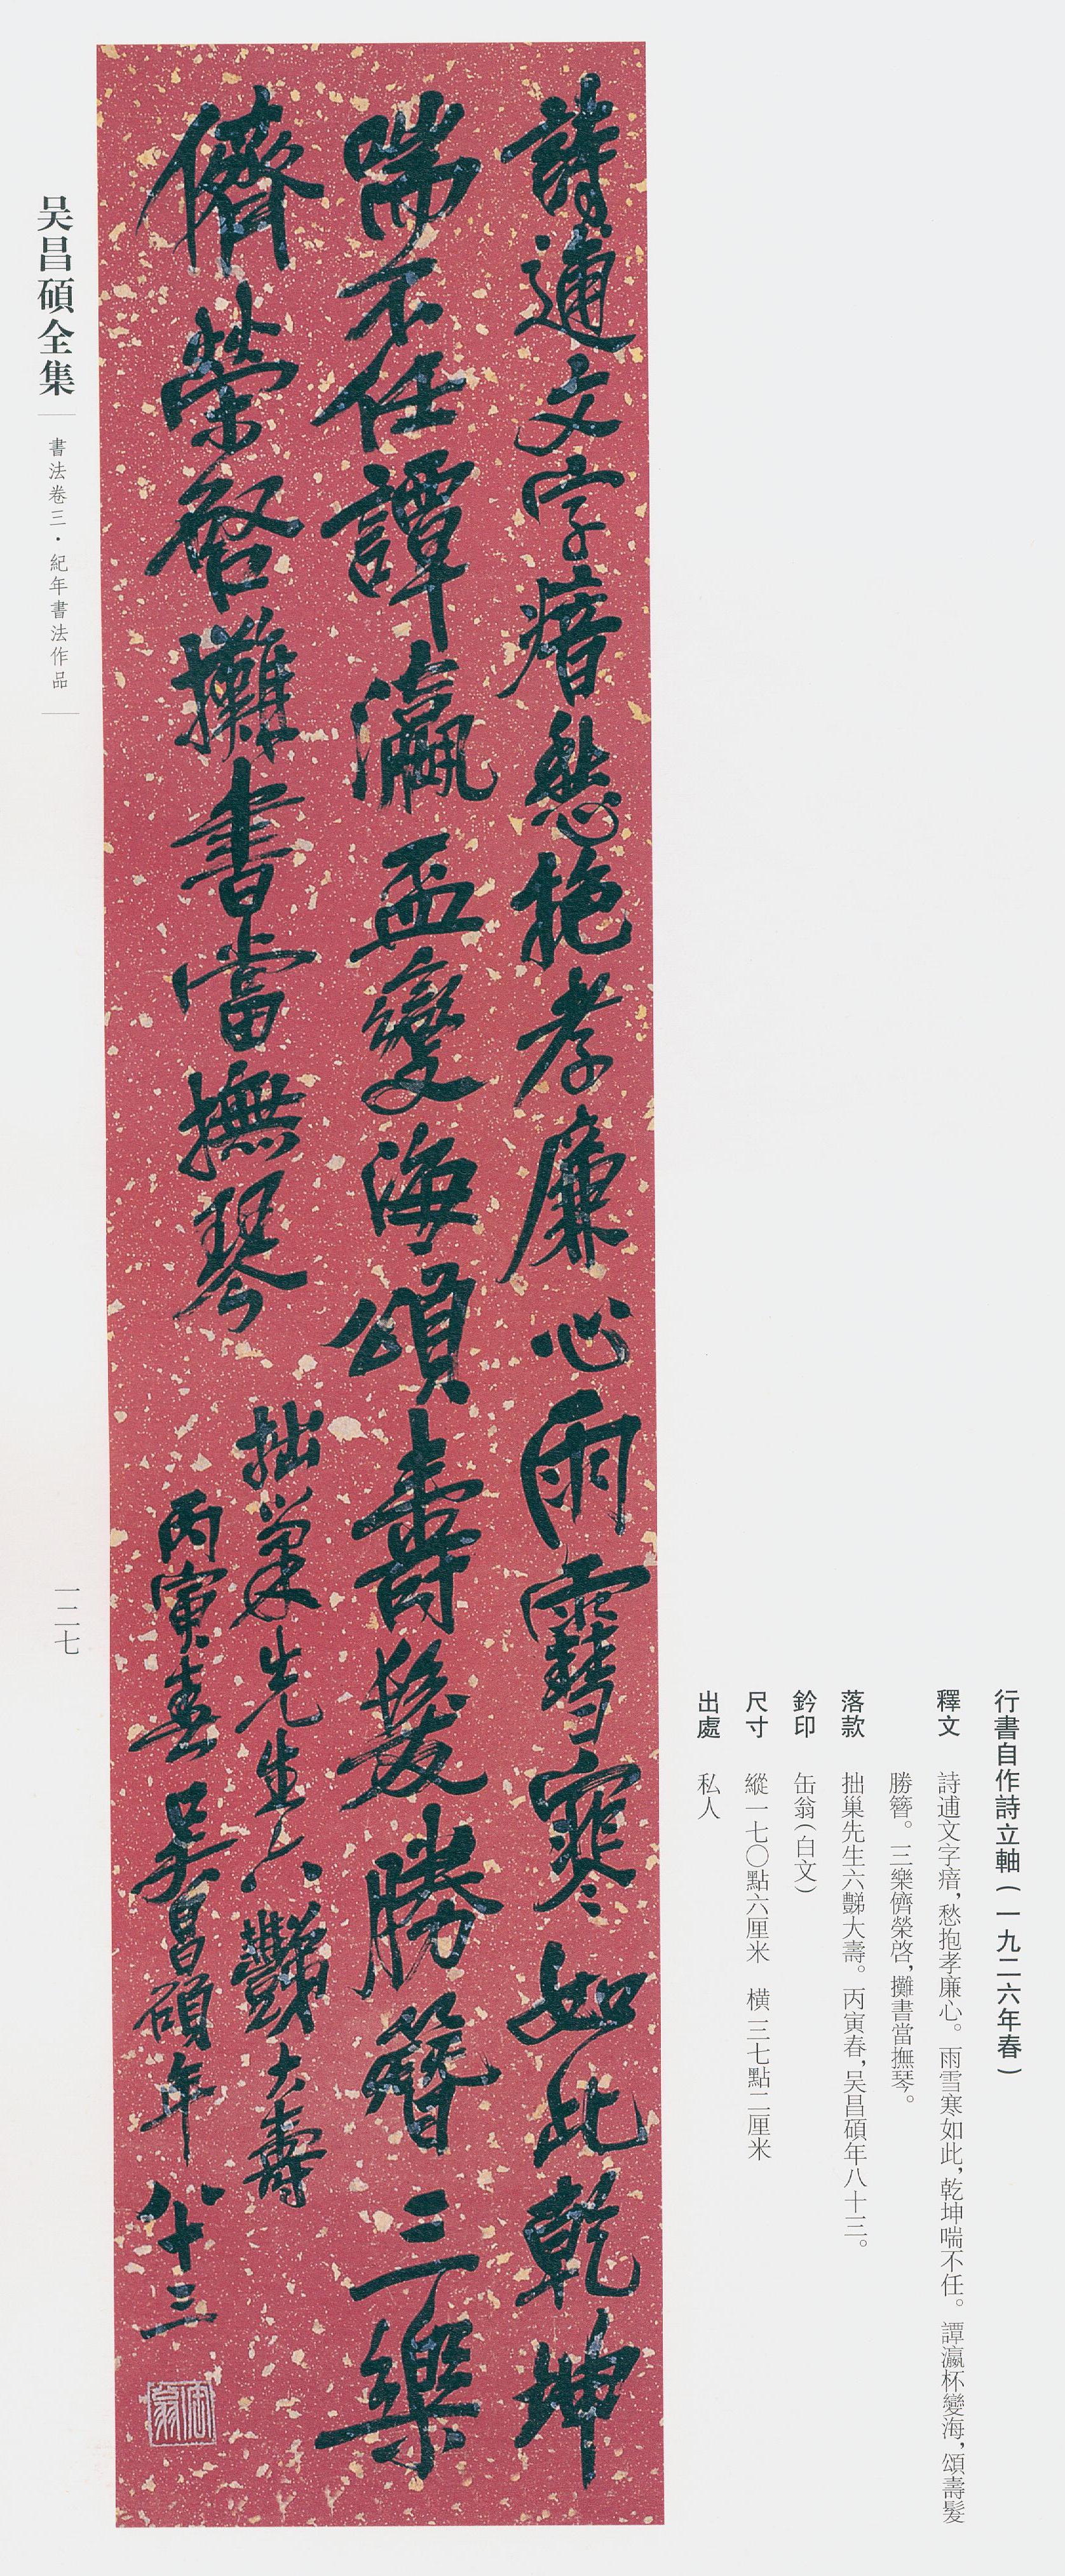 行書自作詩立軸(一九二六年春)
釋文　詩逋文字瘖,愁抱孝廉心。雨雪寒如此,乾坤喘不任。譚瀛杯變海,頌壽髮
勝簪。三樂儕榮啓,攤書當撫琴。
落款　拙巢先生六豑大壽。丙寅春,吴昌碩年八十三。
鈐印　缶翁(白文)
尺寸　縱一七〇點六厘米　横三七點二厘米
出處　私人
詩逋文字瘖愁抱孝廉心雨雪寒如此乾坤
喘不任譚瀛盃變海頌壽髮勝簪三樂
儕榮啓攤書當撫琴
拙巢先生六豑大壽
丙寅春吳昌碩年八十三
缶翁
吴昌碩全集
書法卷三·紀年書法作品
一二七